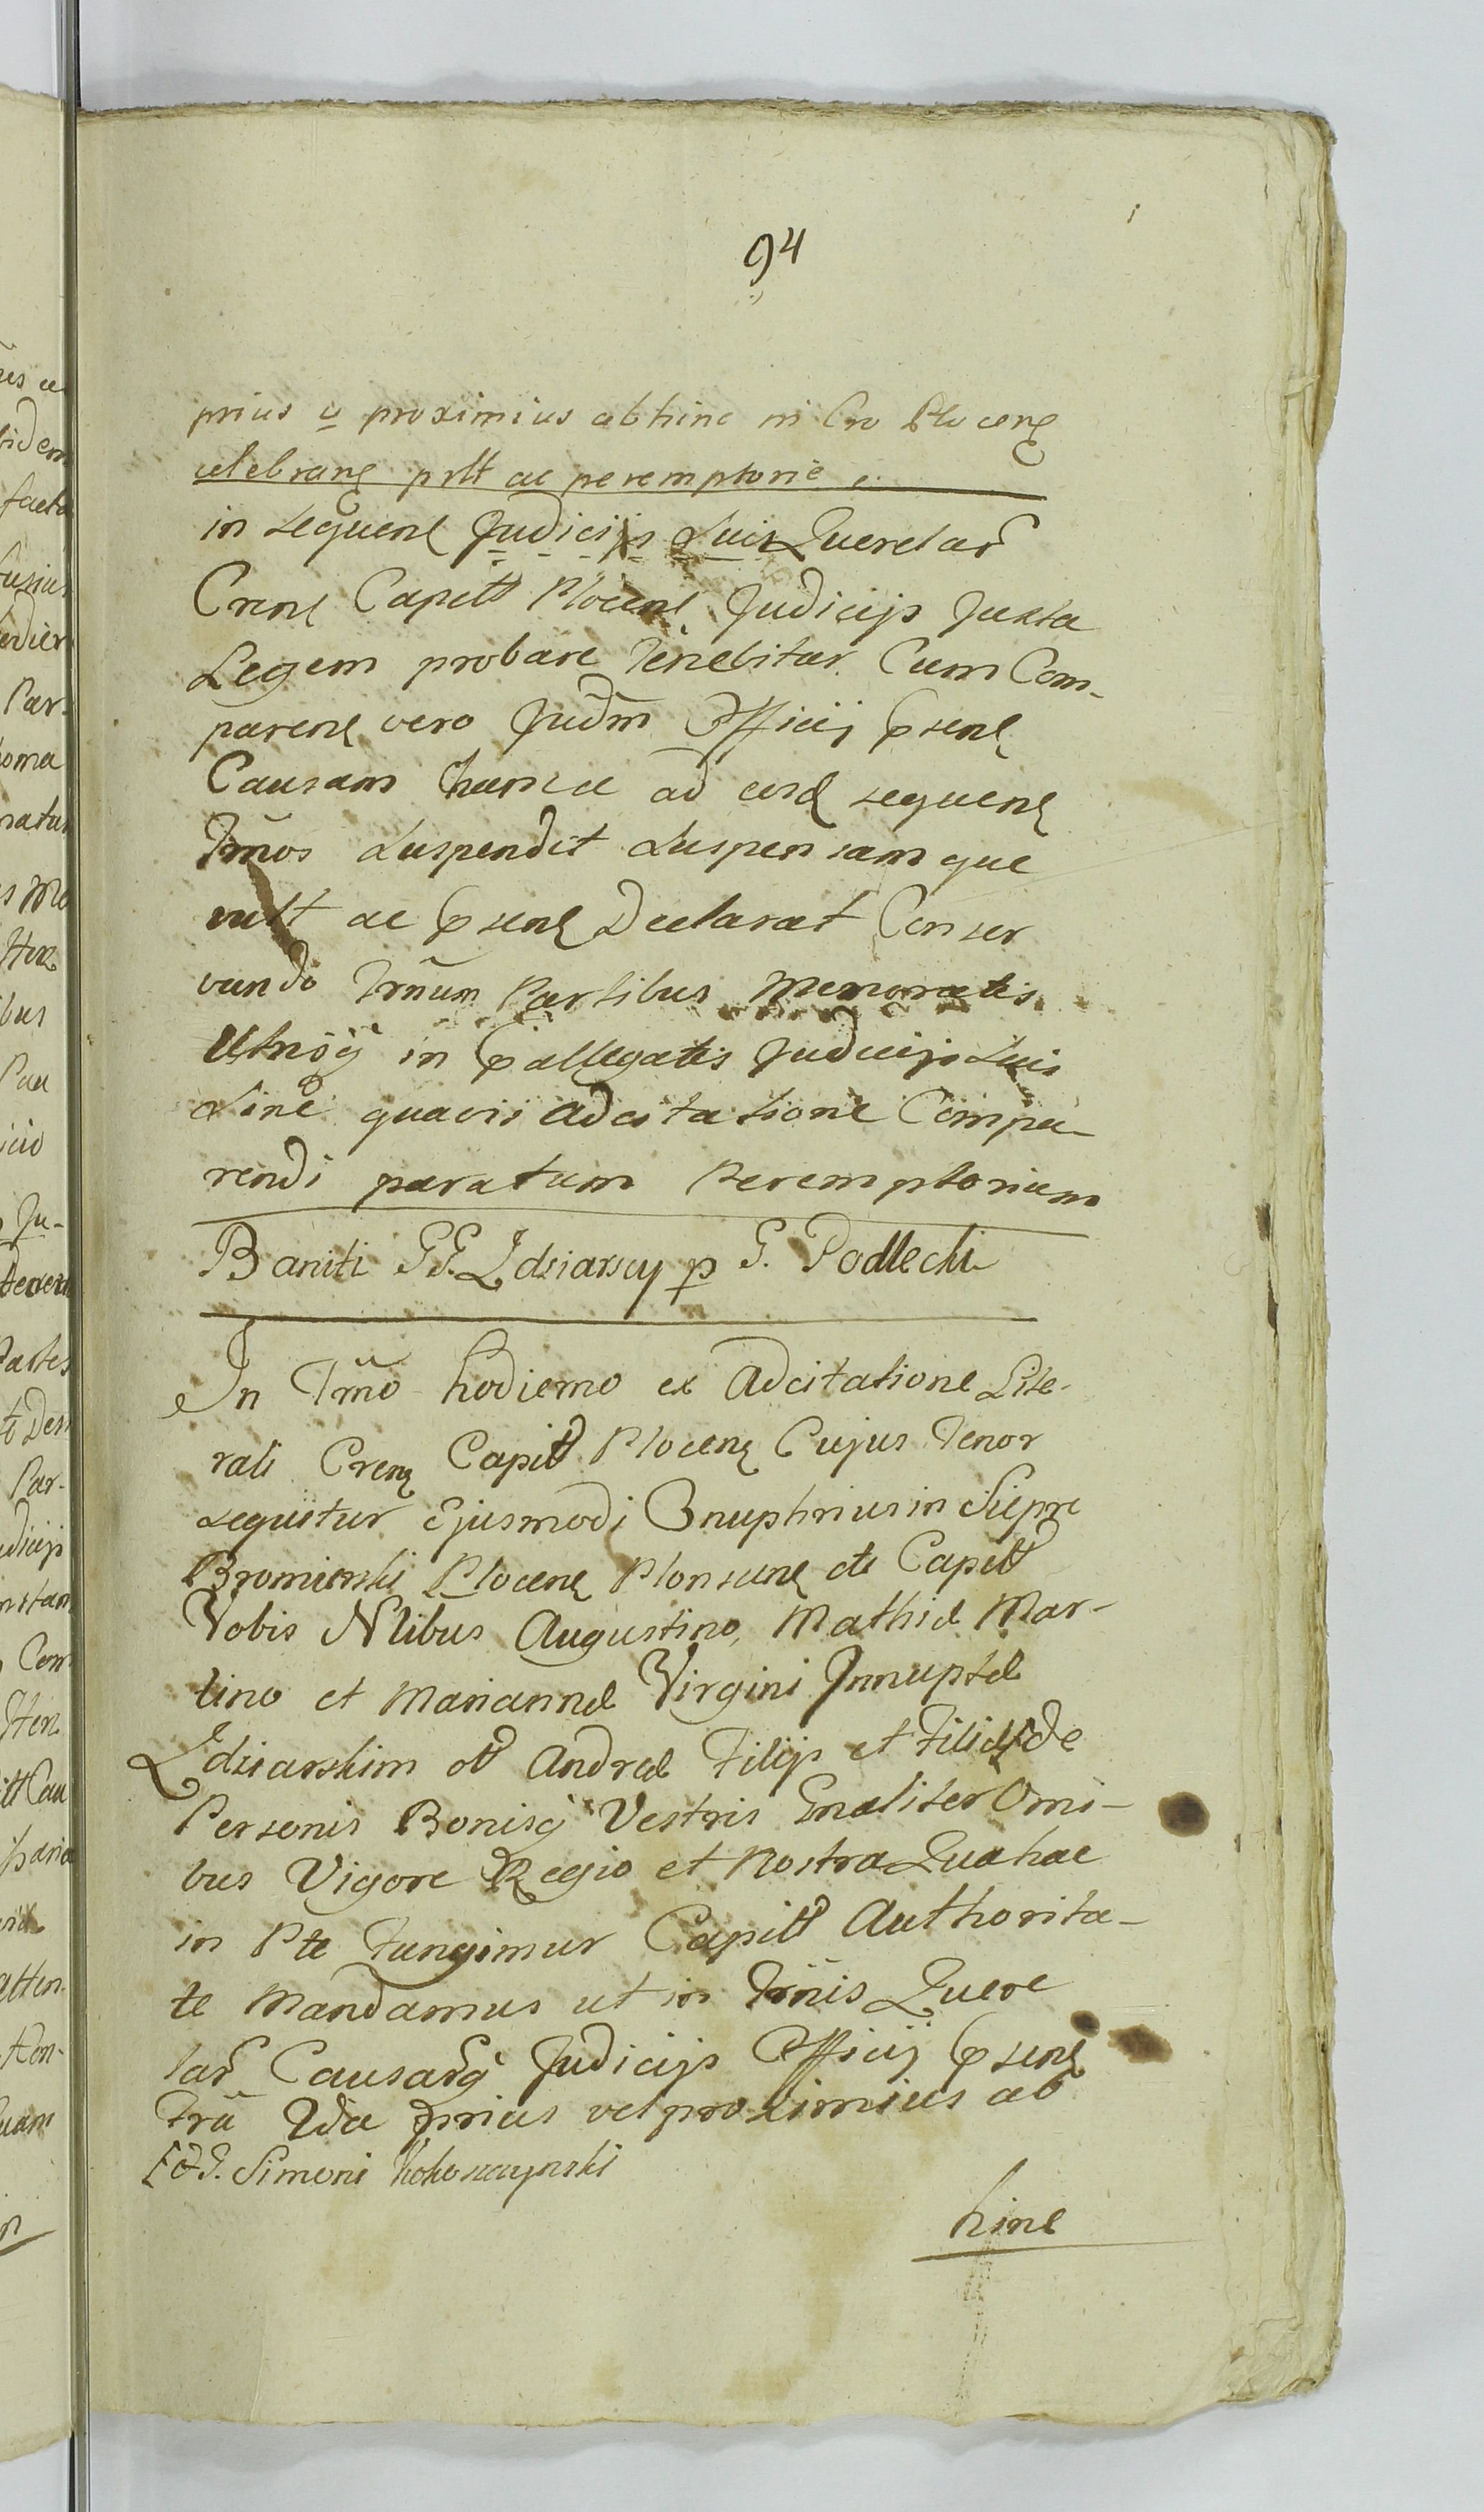 94
prius v proximius abhinc in Cro Plocen
celebran pltt ac peremptorie
in sequen Judicijs Suis Querelar
Cren Capitt Plocen Judicijs Juxta
Legem probare tenebitur. Cum Com-
paren vero Judm Officij psen
Causam hanc ad eosd sequen
Trnos Suspendit Suspensamque
vult ac psen Declarat Conser
vando Trnum Partibus Memoratis
Utrisq in pallegatis Judicijs Suis
Sine quavis adcitatione Compa-
rendi paratum Peremptorium
Baniti GG. Zdziarscy p G. Podlecki
In Trno hodierno ex Adcitatione Lite-
rali Cren Capitt Plocen Cujus Tenor
sequitur Ejusmodi Onuphrius in Siepre
Bromierski Plocen Plonscen etc Capitt
Vobis Nlibus Augustino, Mathiæ Mar-
tino et Mariannæ Virgini Innuptæ
Zdziarskim olt Andreæ Filijs et Filiæ de
Personis Bonisq Vestris Gnaliter Omi-
bus Vigore Regio et Nostra Qua hac
in Pte Fungimur Capitt Authorita-
te Mandamus ut in Trnis Quere
lar Causarq Judicijs Officij psen
Tra Xda prius vel proximius ab
G. Simoni Kokoszczynski
hinc